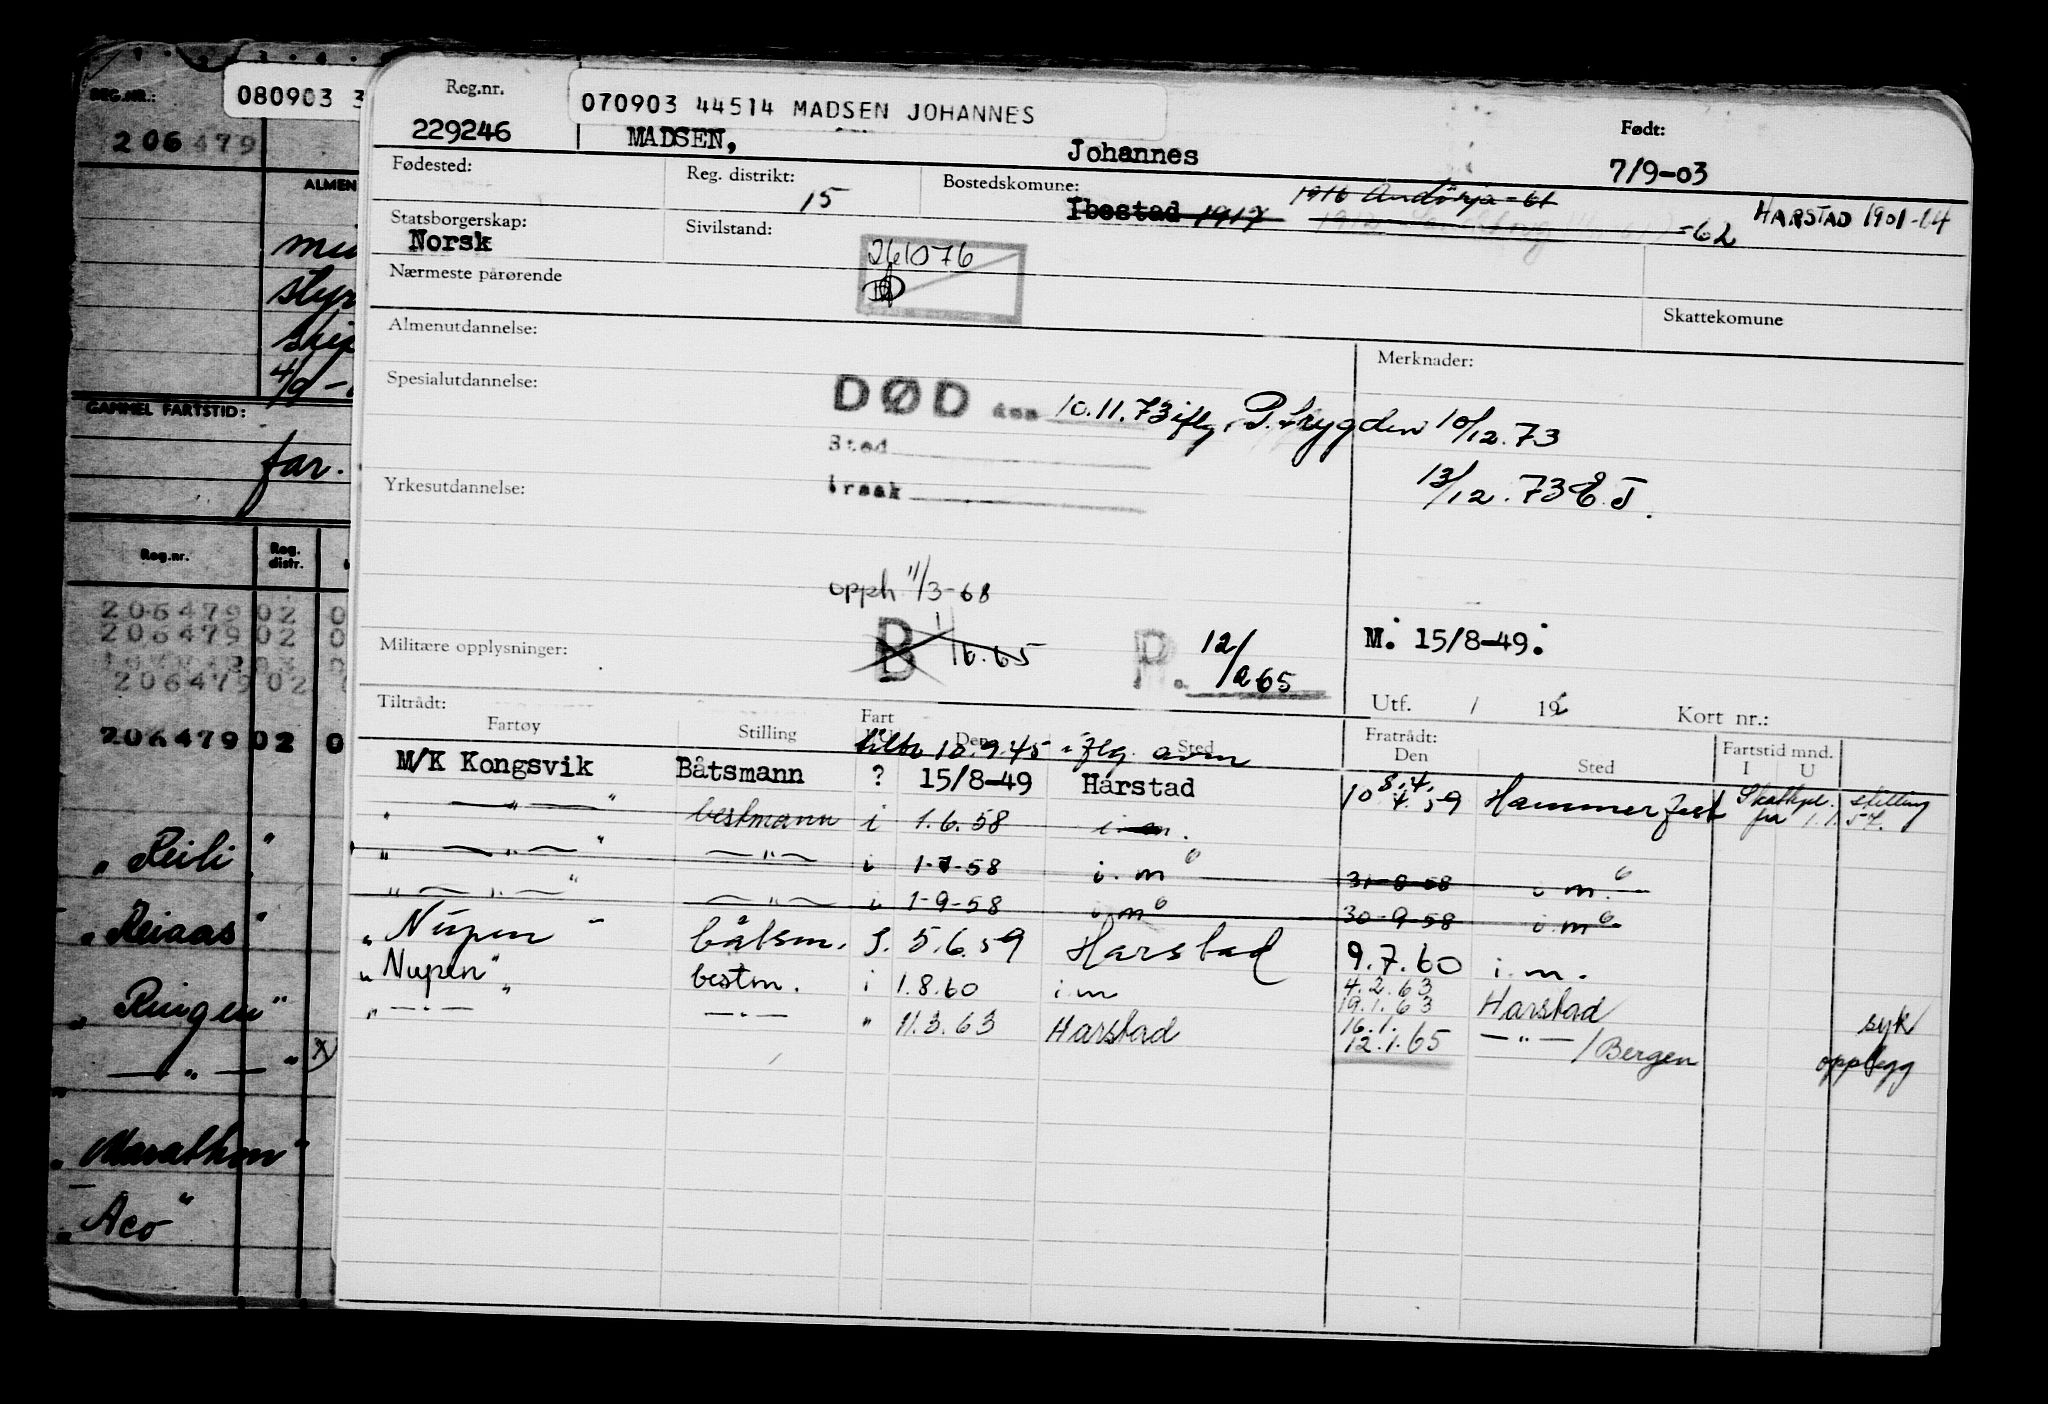 REG.NR.:
080903 3
206479
ALMEN
styr
4/9 -
GAMMEL FARTSTID:
far.
Reg.nr.
Reg. distr.
206479 02 0
206479 02 0
206479 02
206479 02 0
" Reili "
" Reiaas "
" Ringen "
— " — " x
" Marathon "
" Aco "
Reg.nr.
070903 44514 MADSEN JOHANNES
229246
MADSEN,
Johannes
Født:
7/9-03
Fødested:
Reg. distrikt:
15
Bostedskomune:
Ibestad 1917
1916 Andörja - 61
-62
HARSTAD 1901-14
Statsborgerskap:
Norsk
Sivilstand:
261076
Nærmeste pårørende
Skattekomune
Almenutdannelse:
Merknader:
Spesialutdannelse:
DØD den 10.11.73 iflg. P.trygden 10/12.73
Sted
Årsak
13/12.73 E.J.
Yrkesutdannelse:
opph 11/3-68
B
R. 12/2 65
M: 15/8-49.
Militære opplysninger:
Utf. / 19
Kort nr.:
Tiltrådt:
Fartøy
Stilling
Fart
Den
Sted
Fratrådt:
Den
Sted
Fartstid mnd.
I U
tiltr 18.9.45 iflg. avm
M/K Kongsvik Båtsmann ? 15/8-49 Harstad 10 8.4. 4.59 Hammerfest Skattepl. stilling fra 1.1.57.
" — " — " bestmann i 1.6.58 i m.
" — " — " — " — i 1-7-58 i.m. 31-8-58 i m.
" — " — " — " — i 1-9-58 i m 30-9-58 i m
" Nupen " båtsm. I. 5.6.59 Harstad 9.7.60 i.m.
" Nupen " bestm. i 1.8.60 i m 4.2.63 19.1.63 Harstad syk
" — " — " — " — " 11.3.63 Harstad 16.1. 12.1.65 — " — / Bergen opplegg